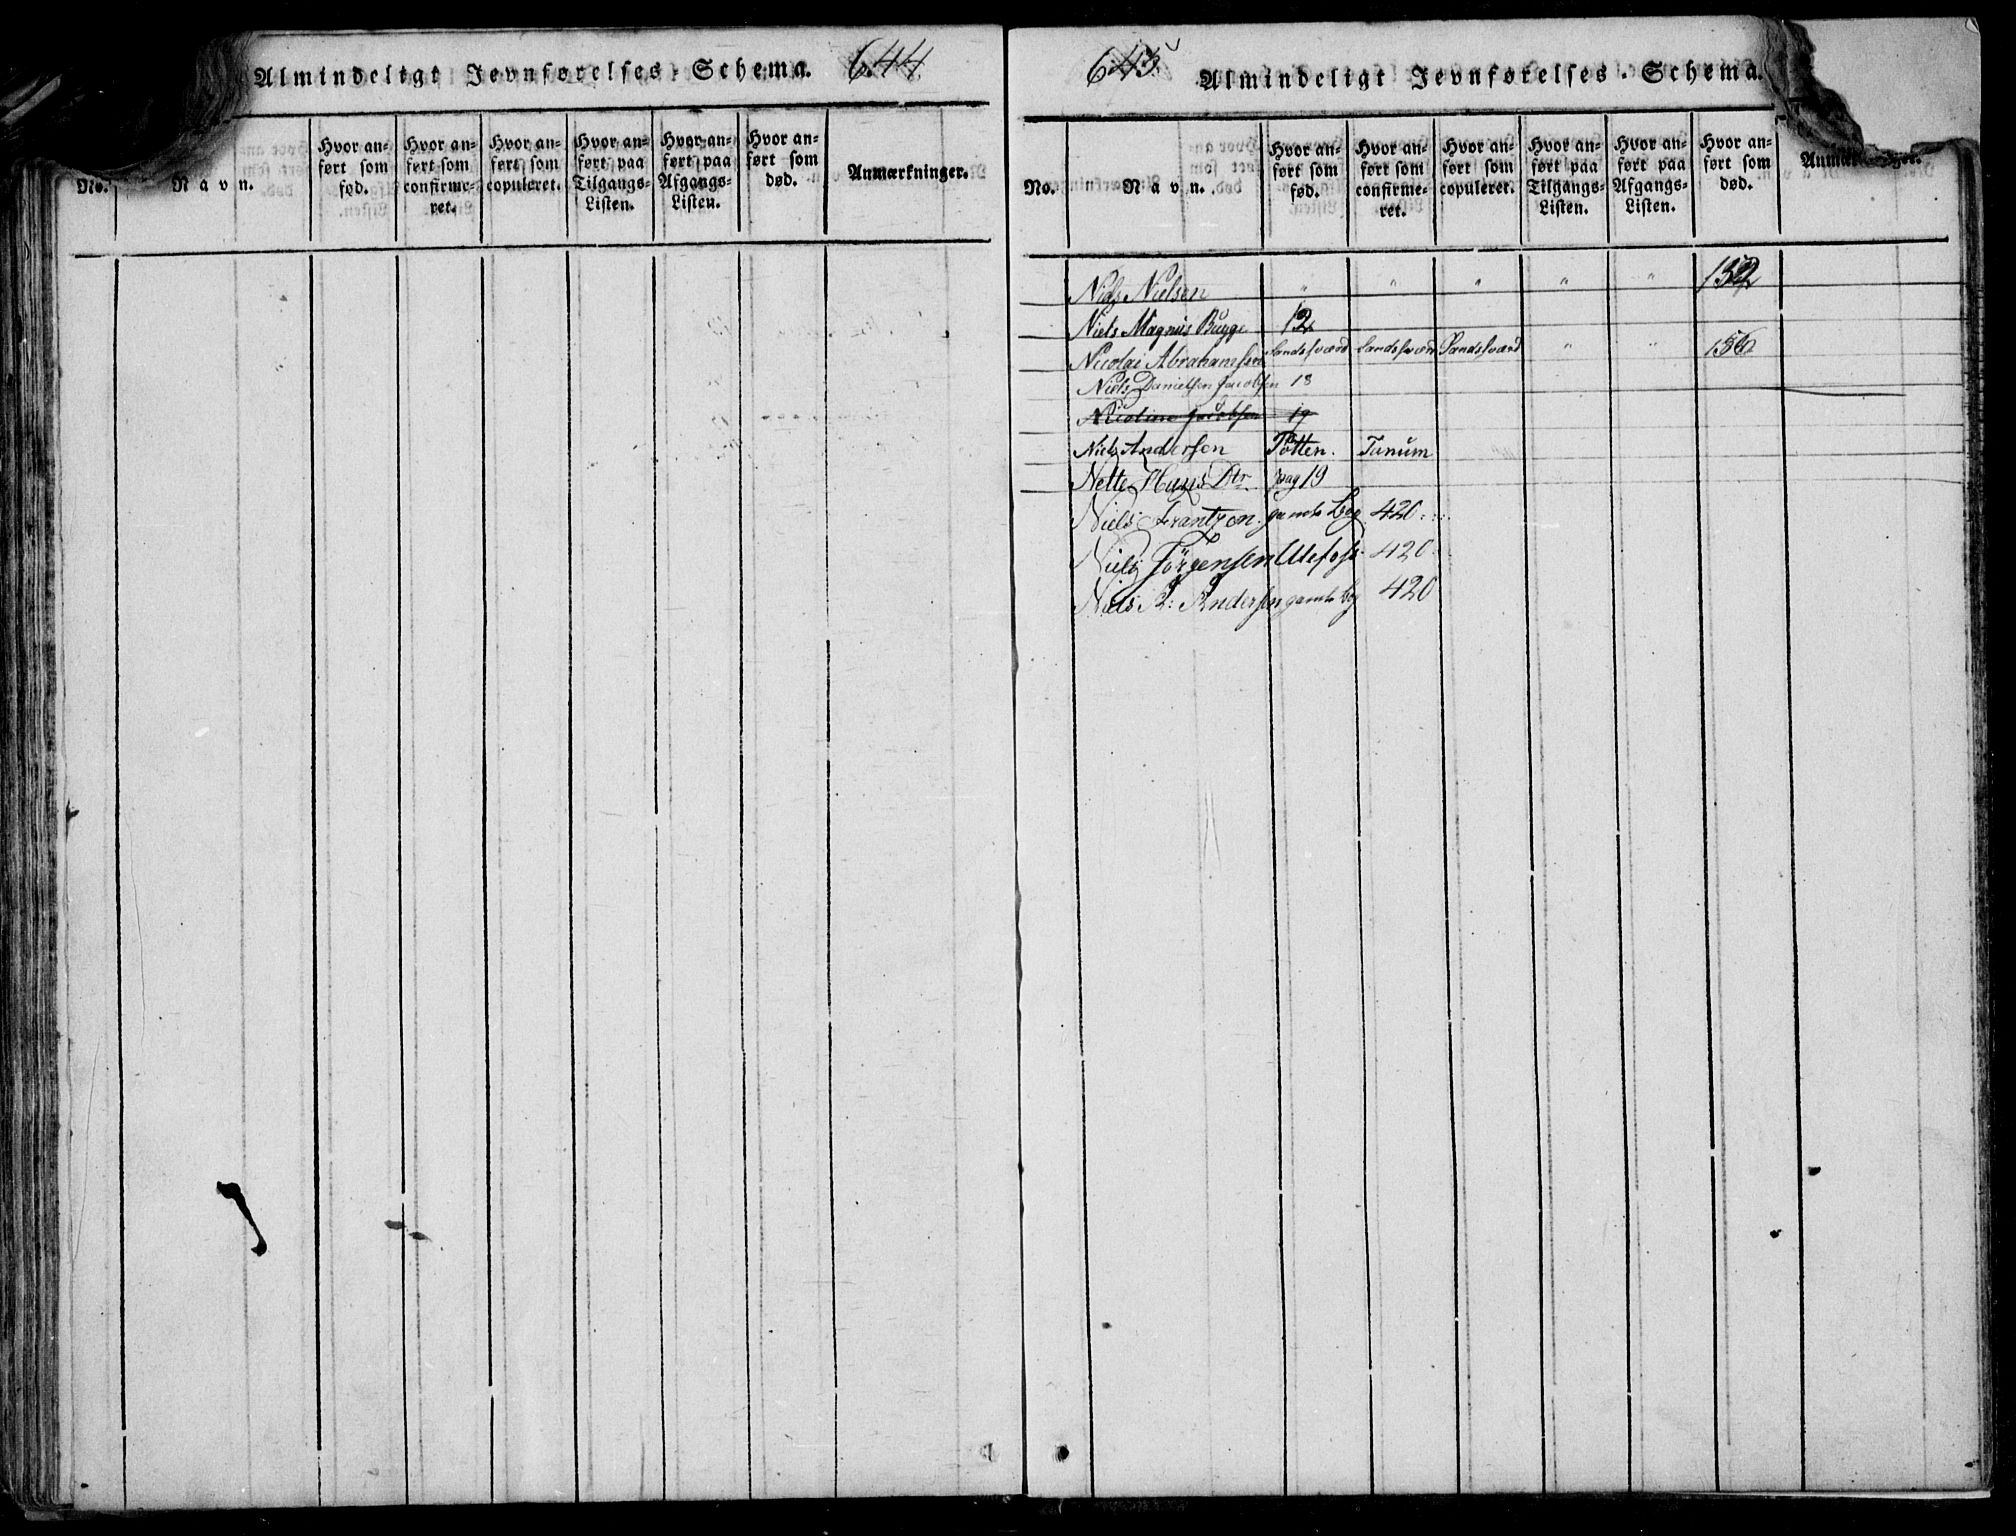 Almindeligt Jevnførelses-Schema. 644.
No. Navn. Hvor anført som fød. Hvor anført som confirmeret. Hvor anført som copuleret. Hvor anført paa Tilgangs-Listen. Hvor anført paa Afgangs-Listen. Hvor anført som død. Anmærkninger.
645. Almindeligt Jevnførelses-Schema.
No. Navn. Hvor anført som fød. Hvor anført som confirmeret. Hvor anført som copuleret. Hvor anført paa Tilgangs-Listen. Hvor anført paa Afgangs-Listen. Hvor anført som død.
Niels Nielsen " " " " " 152
Niels Magnus Bugge 12
Nicolai Abrahamsen Sandsværd Sandsværd Sandsværd " " 156
Niels Danielsen Jacobsen 18
Nicoline Jacobsen 19
Niels Andersen Totten. Tanum
Nette Hans Dtr. pag 19
Niels Frantzen. gamle Bog 420
Niels Jörgensen Ulefoss. 420
Niels R: Andersen gamle Bog 420